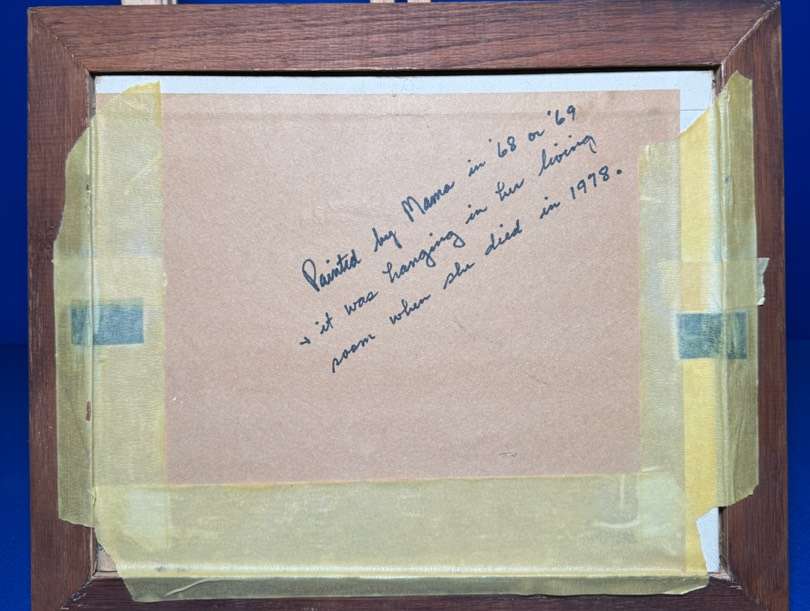 Painted by Mama in '68 or '69
+ it was hanging in her living
room when she died in 1978.